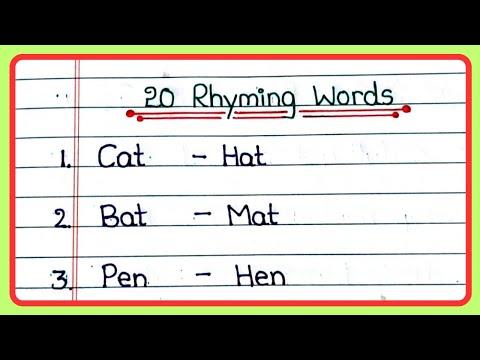 20 Rhyming Words
1. Cat - Hat
2. Bat - Mat
3. Pen - Hen